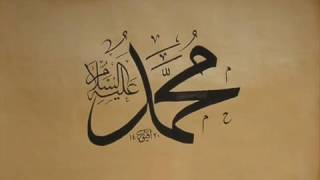 مُحَمَّد
عَلَيْهِ السَّلَام
م
ح م